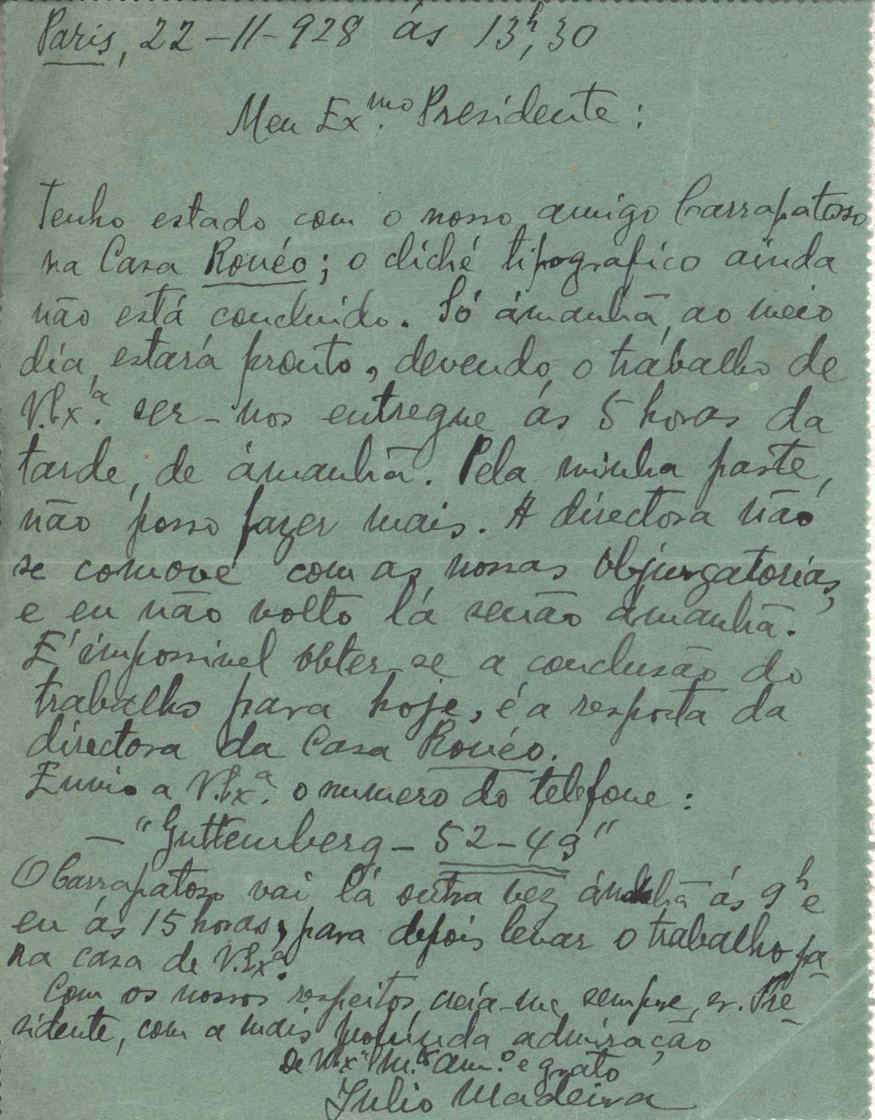 Paris, 22-11-928 ás 13h,30
Meu Exmo. Presidente:
Tenho estado com o nosso amigo Carrapatoso
na Casa Ronéo; o cliché tipografico ainda
não está concluido. Só ámanhã, ao meio
dia, estará pronto, devendo, o trabalho de
V.Exª. ser-nos entregue ás 5 horas da
tarde, de ámanhã. Pela minha parte,
não posso fazer mais. A directora não
se comove com as nossas objurgatorias,
e eu não volto lá senão ámanhã.
E' impossivel obter-se a conclusão do
trabalho para hoje, é a resposta da
directora da Casa Ronéo.
Envio a V.Exª. o numero do telefone:
— "Guttemberg - 52-49"
O Carrapatoso vai lá outra vez ámanhã ás 9h e
eu ás 15 horas, para depois levar o trabalho pa-
ra casa de V.Exª.
Com os nossos respeitos, creia-me sempre, sr. Pre-
sidente, com a mais profunda admiração
de V.Exª. m.to am.o e grato
Julio Madeira